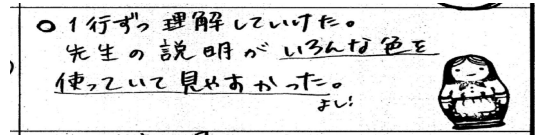 ○ 1行ずつ理解していけた。
先生の説明がいろんな色を
使っていて見やすかった。
よし!